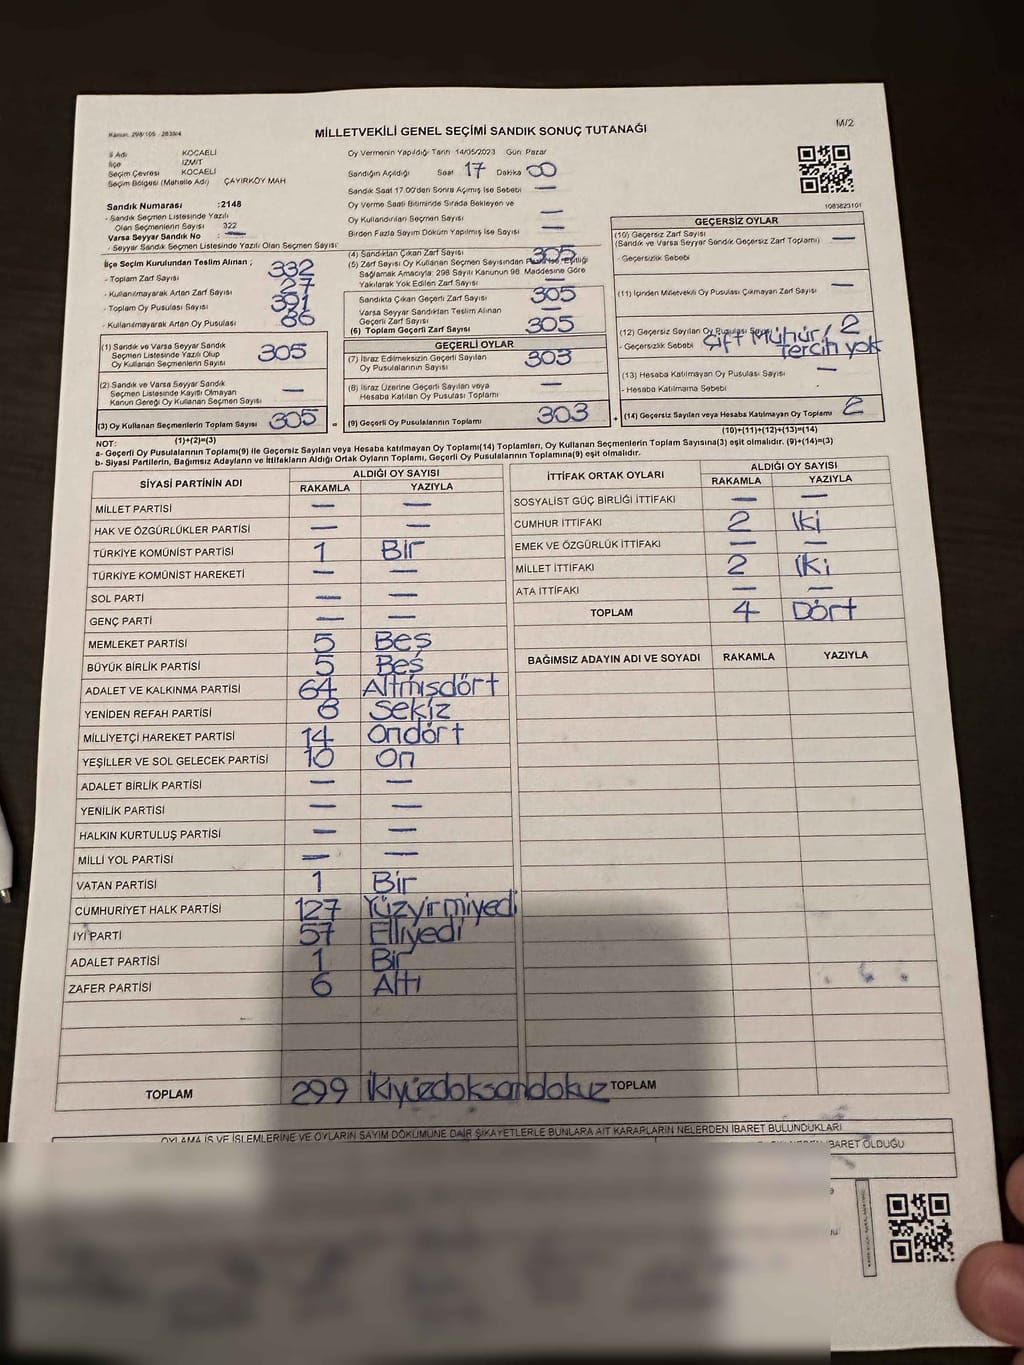 Kanun: 298/105 - 2839/4
MİLLETVEKİLİ GENEL SEÇİMİ SANDIK SONUÇ TUTANAĞI
M/2
İl Adı KOCAELİ
İlçe İZMİT
Seçim Çevresi KOCAELİ
Seçim Bölgesi (Mahalle Adı) ÇAYIRKÖY MAH
Sandık Numarası :2148
- Sandık Seçmen Listesinde Yazılı
Olan Seçmenlerin Sayısı 322
Varsa Seyyar Sandık No : —
- Seyyar Sandık Seçmen Listesinde Yazılı Olan Seçmen Sayısı
Oy Vermenin Yapıldığı Tarih 14/05/2023 Gün Pazar
Sandığın Açıldığı Saat 17 Dakika 00
Sandık Saat 17.00'den Sonra Açılmış İse Sebebi —
Oy Verme Saati Bitiminde Sırada Bekleyen ve
Oy Kullandırılan Seçmen Sayısı —
Birden Fazla Sayım Döküm Yapılmış İse Sayısı —
1083823101
İlçe Seçim Kurulundan Teslim Alınan ;
- Toplam Zarf Sayısı 332
- Kullanılmayarak Artan Zarf Sayısı 27
- Toplam Oy Pusulası Sayısı 391
- Kullanılmayarak Artan Oy Pusulası 86
(1) Sandık ve Varsa Seyyar Sandık
Seçmen Listesinde Yazılı Olup
Oy Kullanan Seçmenlerin Sayısı 305
(2) Sandık ve Varsa Seyyar Sandık
Seçmen Listesinde Kayıtlı Olmayan
Kanun Gereği Oy Kullanan Seçmen Sayısı —
(3) Oy Kullanan Seçmenlerin Toplam Sayısı 305
(4) Sandıktan Çıkan Zarf Sayısı 305
(5) Zarf Sayısı Oy Kullanan Seçmen Sayısından Fazla İse, Eşitliği
Sağlamak Amacıyla; 298 Sayılı Kanunun 98 Maddesine Göre
Yakılarak Yok Edilen Zarf Sayısı —
Sandıkta Çıkan Geçerli Zarf Sayısı 305
Varsa Seyyar Sandıktan Teslim Alınan
Geçerli Zarf Sayısı —
(6) Toplam Geçerli Zarf Sayısı 305
GEÇERLİ OYLAR
(7) İtiraz Edilmeksizin Geçerli Sayılan
Oy Pusulalarının Sayısı 303
(8) İtiraz Üzerine Geçerli Sayılan veya
Hesaba Katılan Oy Pusulası Toplamı —
= (9) Geçerli Oy Pusulalarının Toplamı 303
GEÇERSİZ OYLAR
(10) Geçersiz Zarf Sayısı
(Sandık ve Varsa Seyyar Sandık Geçersiz Zarf Toplamı) —
- Geçersizlik Sebebi
(11) İçinden Milletvekili Oy Pusulası Çıkmayan Zarf Sayısı —
(12) Geçersiz Sayılan Oy Pusulası Sayısı 2
- Geçersizlik Sebebi Çift Mühür/
Tercih yok
(13) Hesaba Katılmayan Oy Pusulası Sayısı —
- Hesaba Katılmama Sebebi
+ (14) Geçersiz Sayılan veya Hesaba Katılmayan Oy Toplamı 2
NOT: (1)+(2)=(3) (10)+(11)+(12)+(13)=(14)
a- Geçerli Oy Pusulalarının Toplamı(9) ile Geçersiz Sayılan veya Hesaba katılmayan Oy Toplamı(14) Toplamları, Oy Kullanan Seçmenlerin Toplam Sayısına(3) eşit olmalıdır. (9)+(14)=(3)
b- Siyasi Partilerin, Bağımsız Adayların ve İttifakların Aldığı Oyların Toplamı, Geçerli Oy Pusulalarının Toplamına(9) eşit olmalıdır.
SİYASİ PARTİNİN ADI ALDIĞI OY SAYISI
RAKAMLA YAZIYLA
MİLLET PARTİSİ — —
HAK VE ÖZGÜRLÜKLER PARTİSİ — —
TÜRKİYE KOMÜNİST PARTİSİ 1 Bir
TÜRKİYE KOMÜNİST HAREKETİ — —
SOL PARTİ — —
GENÇ PARTİ — —
MEMLEKET PARTİSİ 5 Beş
BÜYÜK BİRLİK PARTİSİ 5 Beş
ADALET VE KALKINMA PARTİSİ 64 Altmışdört
YENİDEN REFAH PARTİSİ 8 Sekiz
MİLLİYETÇİ HAREKET PARTİSİ 14 Ondört
YEŞİLLER VE SOL GELECEK PARTİSİ 10 On
ADALET BİRLİK PARTİSİ — —
YENİLİK PARTİSİ — —
HALKIN KURTULUŞ PARTİSİ — —
MİLLİ YOL PARTİSİ — —
VATAN PARTİSİ 1 Bir
CUMHURİYET HALK PARTİSİ 127 Yüzyirmiyedi
İYİ PARTİ 57 Elliyedi
ADALET PARTİSİ 1 Bir
ZAFER PARTİSİ 6 Altı
TOPLAM 299 ikiyüzdoksandokuz
İTTİFAK ORTAK OYLARI ALDIĞI OY SAYISI
RAKAMLA YAZIYLA
SOSYALİST GÜÇ BİRLİĞİ İTTİFAKI — —
CUMHUR İTTİFAKI 2 İki
EMEK VE ÖZGÜRLÜK İTTİFAKI — —
MİLLET İTTİFAKI 2 İki
ATA İTTİFAKI — —
TOPLAM 4 Dört
BAĞIMSIZ ADAYIN ADI VE SOYADI RAKAMLA YAZIYLA
TOPLAM
OYLAMA İŞ VE İŞLEMLERİNE VE OYLARIN SAYIM DÖKÜMÜNE DAİR ŞİKAYETLERLE BUNLARA AİT KARARLARIN NELERDEN İBARET BULUNDUKLARI
İBARET OLDUĞU